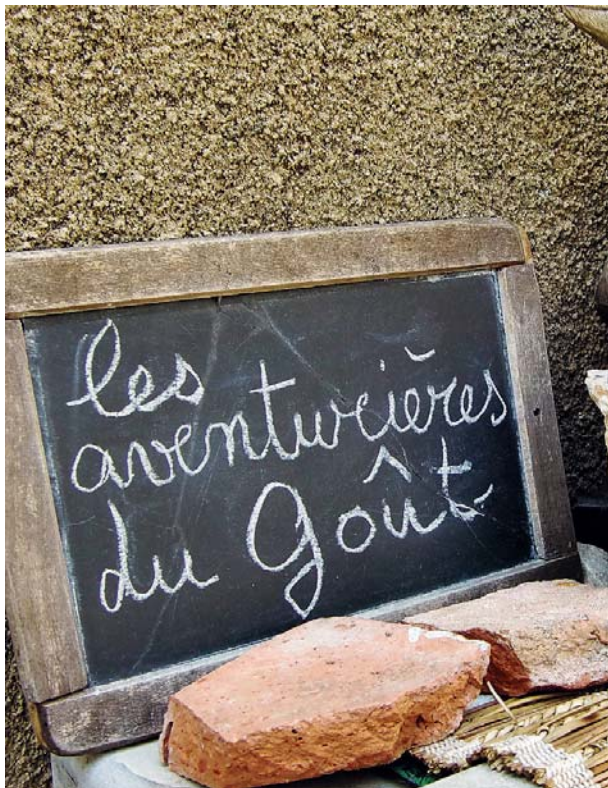 les
aventurières
du Goût